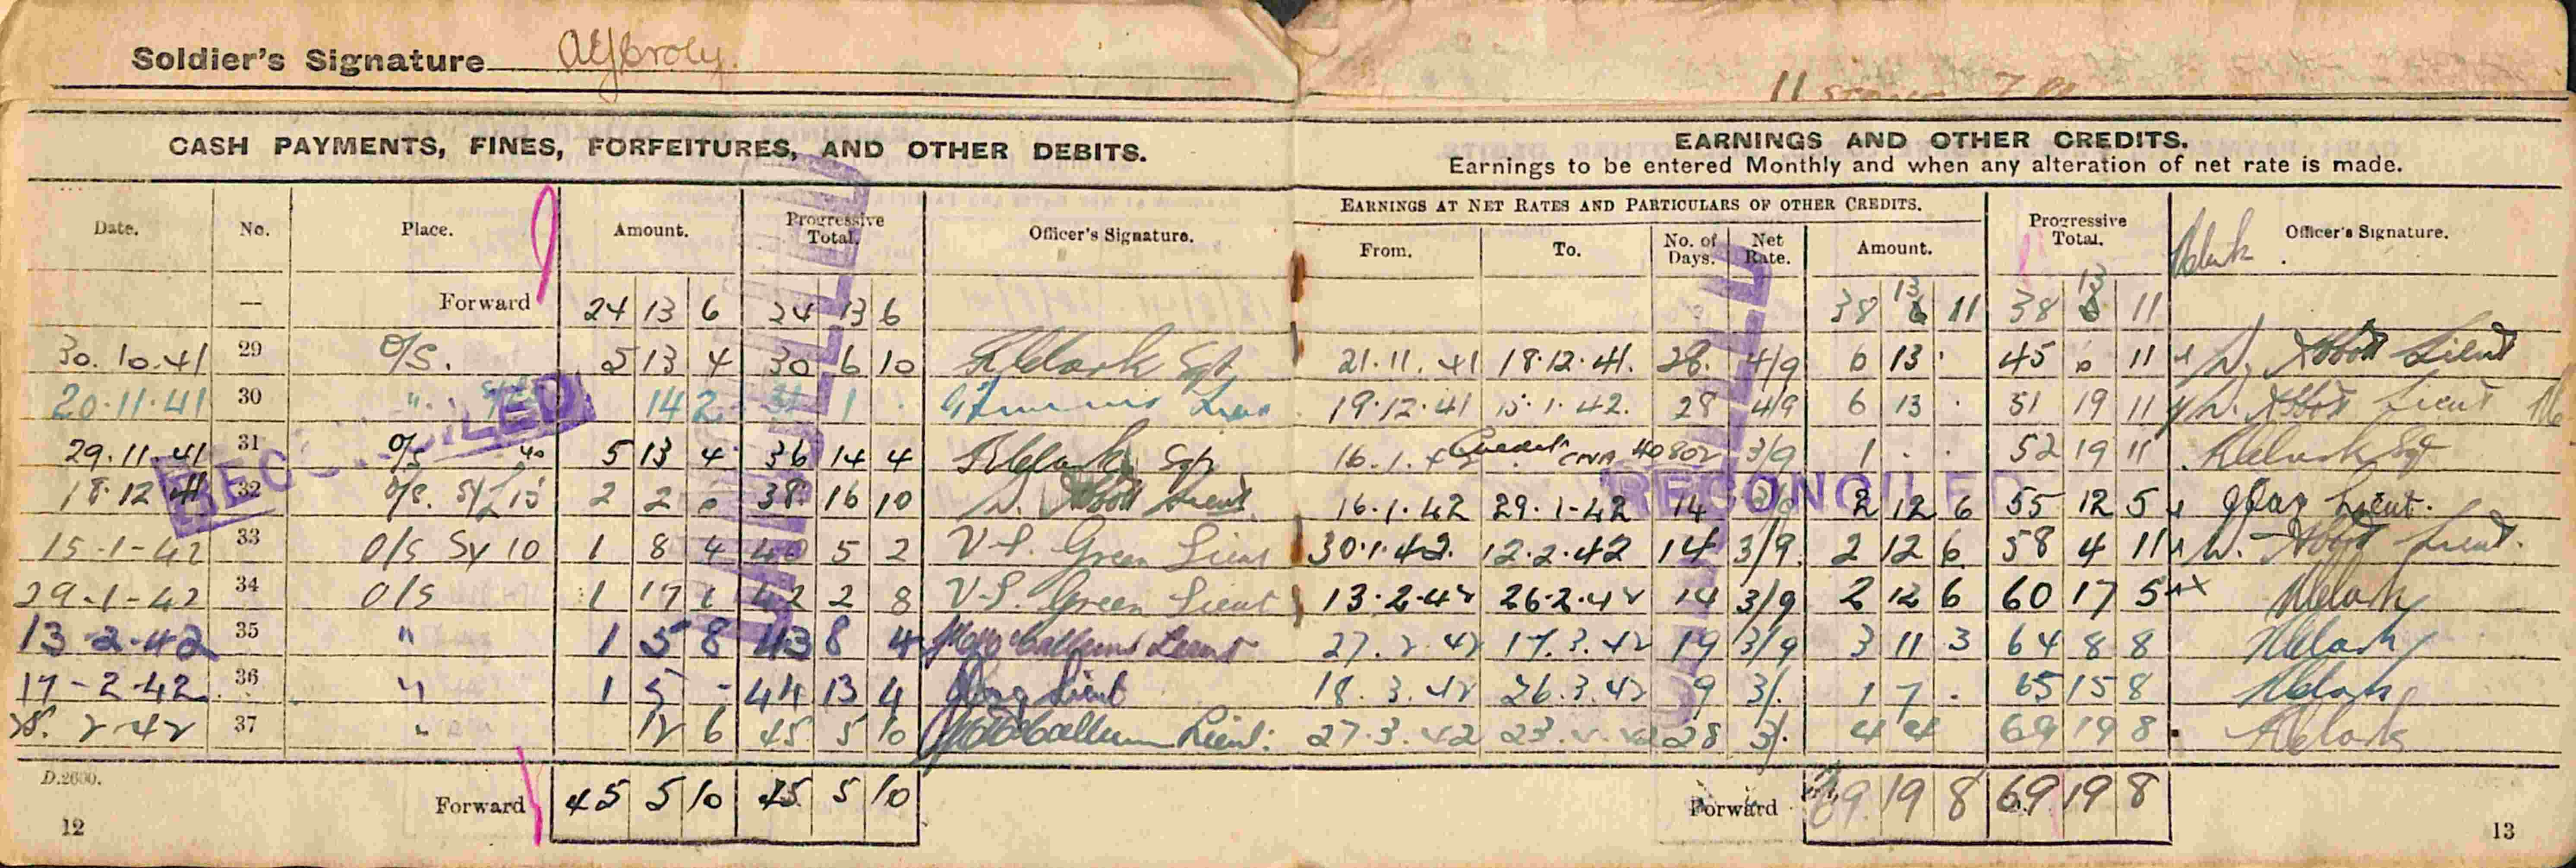 Soldier's Signature
11 7
CASH PAYMENTS, FINES, FORFEITURES, AND OTHER DEBITS.
Date. No. Place. Amount. Progressive Total. Officer's Signature.
— Forward 24 13 6 24 13 6
30.10.41 29 O/S. 5 13 4 30 6 10 Clark Sgt
20.11.41 30 " 14 2 31 1 .
29.11.41 31 O/S 5 13 4 36 14 4 Clark Sgt
18.12.41 32 O/S. 2 2 6 38 16 10 W. Abbott Lieut
15-1-42 33 O/S Sy 10 1 8 4 40 5 2 V.S. Green Lieut
29-1-42 34 O/S 1 17 6 42 2 8 V.S. Green Lieut
13-2-42 35 " 1 5 8 43 8 4 McCallum Lieut
17-2-42 36 " 1 5 - 44 13 4 Lieut
28.2.42 37 " 12 6 45 5 10 McCallum Lieut.
D.2600.
Forward 45 5 10 45 5 10
12
EARNINGS AND OTHER CREDITS.
Earnings to be entered Monthly and when any alteration of net rate is made.
EARNINGS AT NET RATES AND PARTICULARS OF OTHER CREDITS. Progressive Total. Officer's Signature.
From. To. No. of Days. Net Rate. Amount.
Clark
13 13
38 6 11 38 6 11
21.11.41 18.12.41. 28. 4/9 6 13 . 45 6 11 W. Abbott Lieut
19.12.41 15.1.42. 28 4/9 6 13 . 51 19 11 W. Abbott Lieut
16.1.42 Credit 40802 3/9 1 . . 52 19 11 Clark Sgt
16.1.42 29.1-42 14 3/9 2 12 6 55 12 5 Lieut.
30.1.42. 12.2.42 14 3/9. 2 12 6 58 4 11 W. Abbott Lieut.
13.2.42 26.2.42 14 3/9 2 12 6 60 17 5 Clark
27.2.42 17.3.42 19 3/9 3 11 3 64 8 8 Clark
18.3.42 26.3.42 9 3/. 1 7 . 65 15 8 Clark
27.3.42 23.4.42 28 3/. 4 4 69 19 8 Clark
Forward 69 19 8 69 19 8
13
RECONCILED
RECONCILED